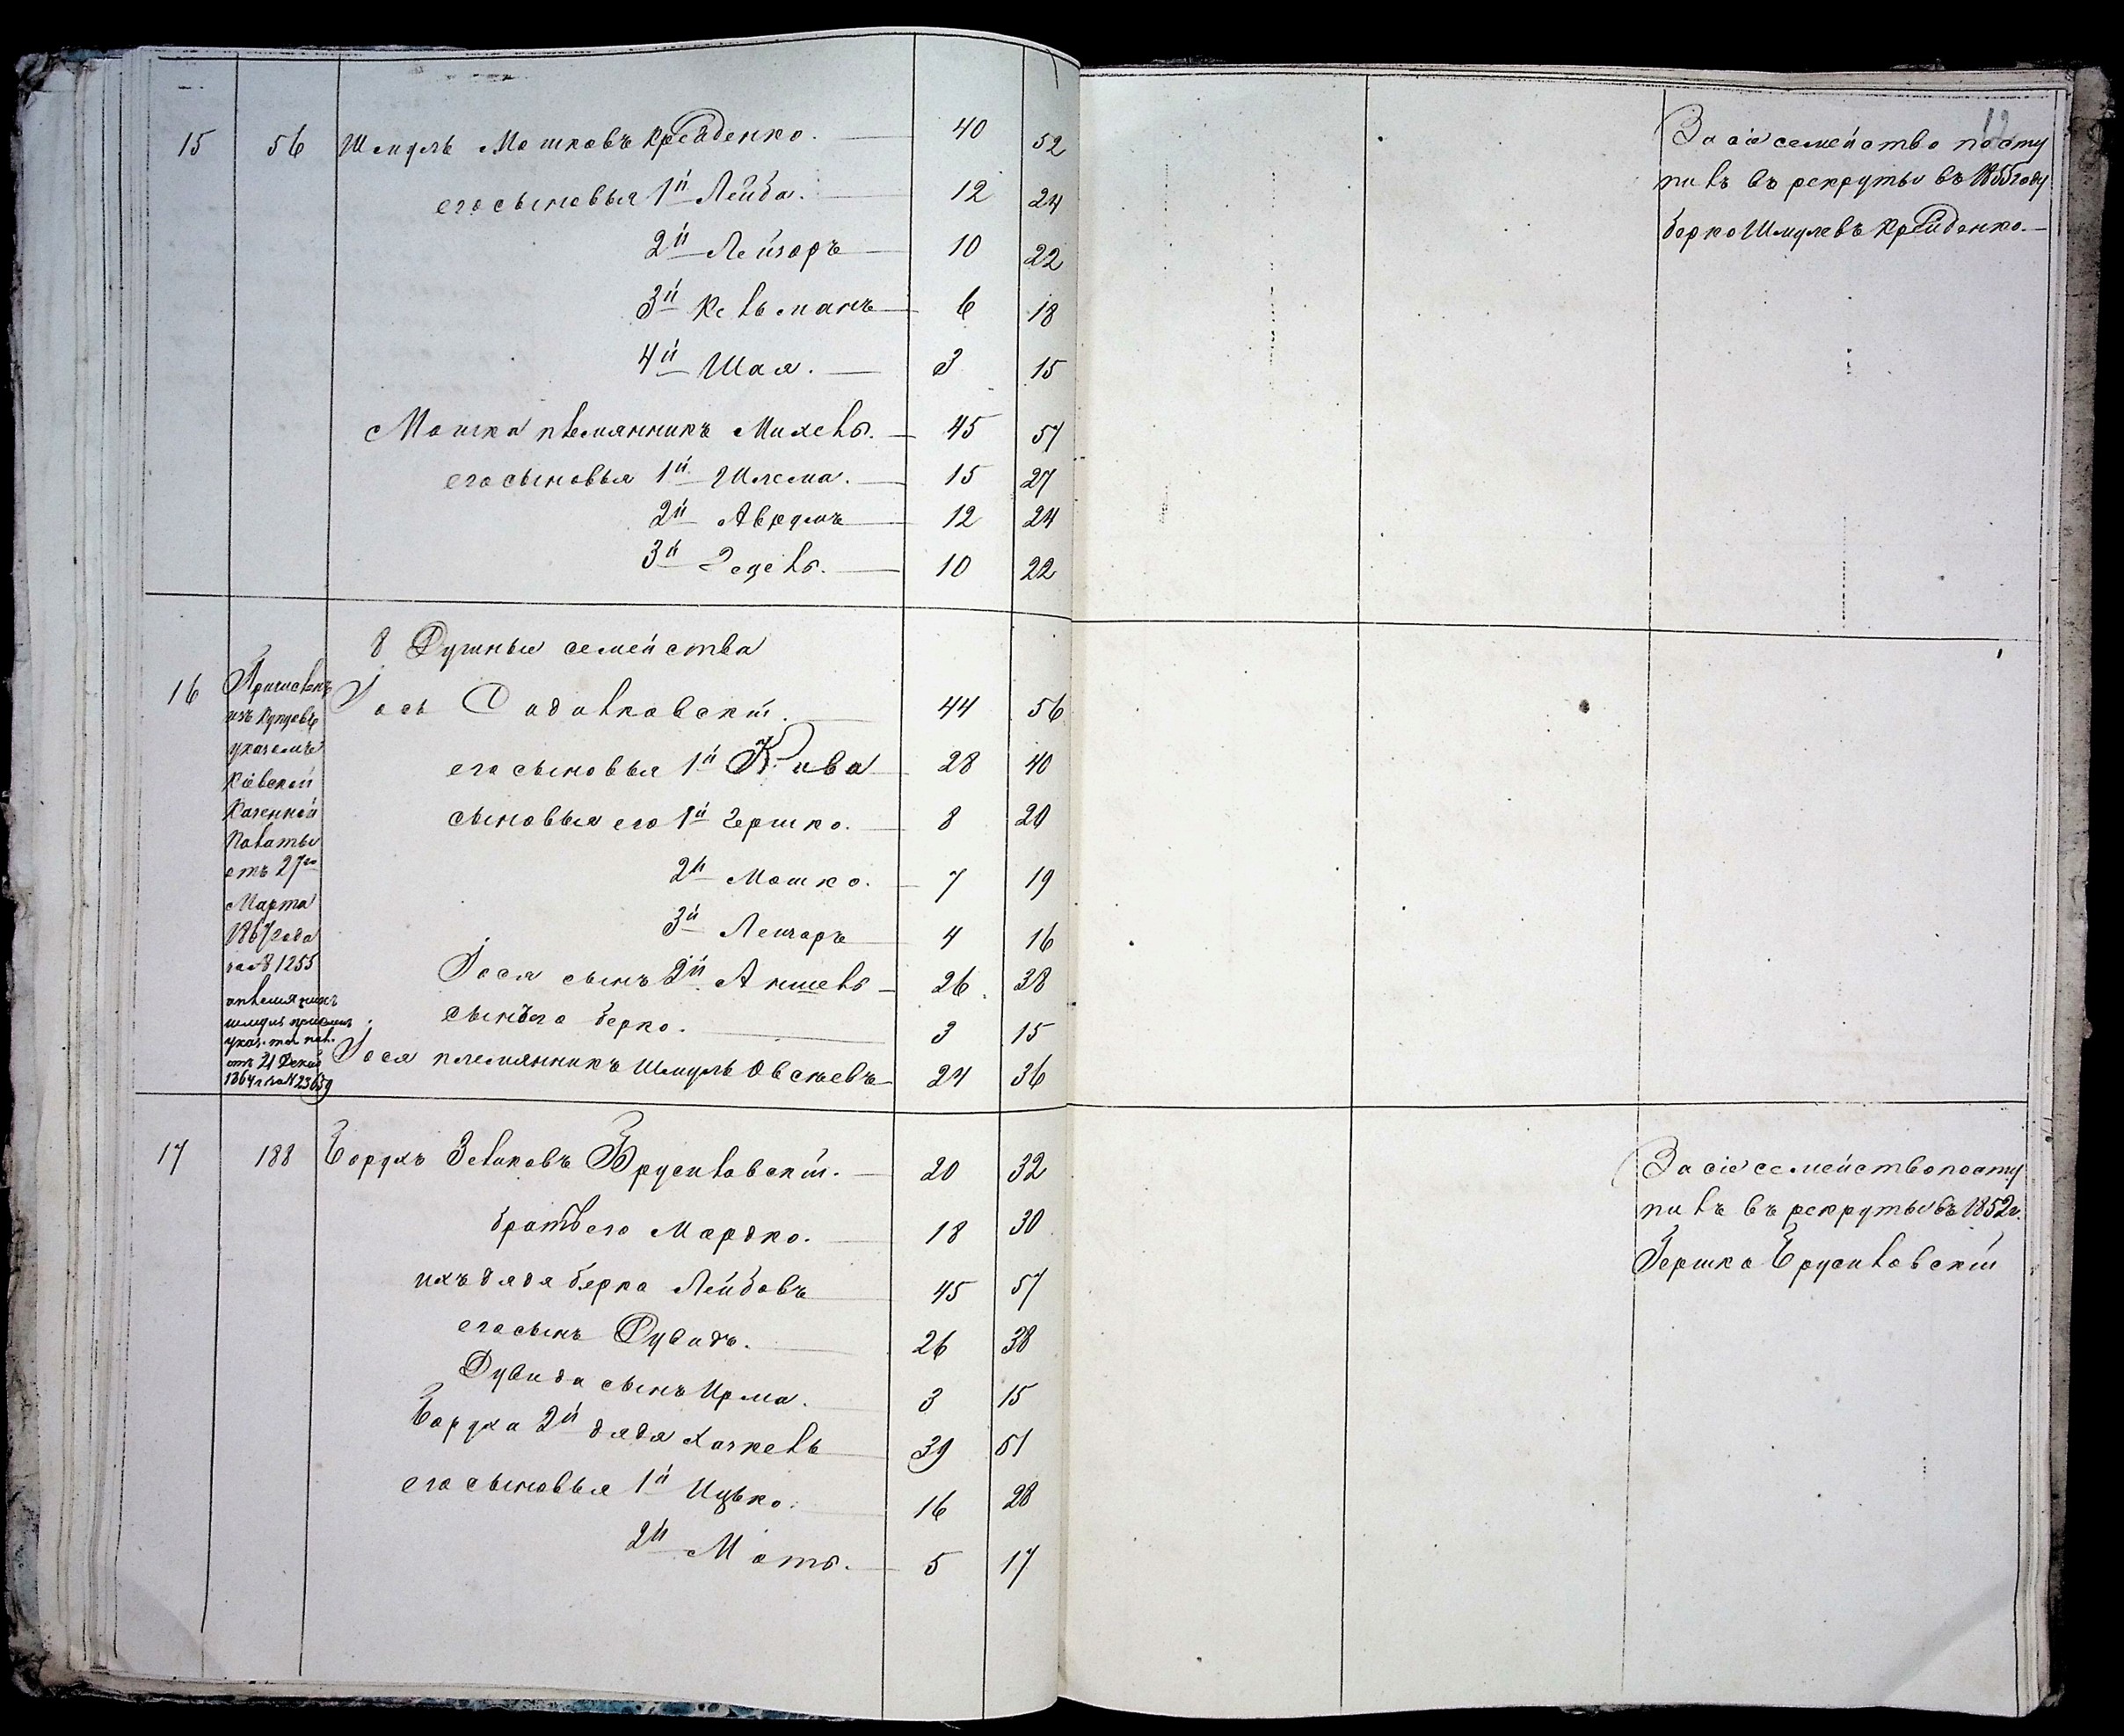 15 56 Шмуль Мошковъ Крейденко. 40 52
его сыновья 1й Лейба. 12 24
2й Лейзоръ 10 22
3й Кельманъ 6 18
4й Шая. 3 15
Мошка племянникъ Михель. 45 57
его сыновья 1й Шлема. 15 27
2й Аврумъ 12 24
3й 10 22
8 Душныя семейства
16 Іось Садовковскій. 44 56
его сыновья 1й Кива 28 40
сыновья его 1й Гершко. 8 20
2й Мошко. 7 19
3й Лейзаръ 4 16
Іося сынъ 2й Аншель 26 38
сынъ его Берко. 3 15
Іося племянникъ Шмуль Овсѣевъ 24 36
Причисленъ
изъ купцовъ
указомъ
Кіевской
Казенной
Палаты
отъ 27го
Марта
1867 года
за № 1255
а племяникъ
Шмуль
указ. той пал.
отъ 21 Декаб
1864 г. за №
17 188 Борухъ Зеликовъ Брусиловскій. 20 32
братъ его Мордко. 18 30
ихъ дядя Берко Лейбовъ 45 57
его сынъ Дувидъ. 26 38
Дувида сынъ Ирма. 3 15
Боруха 2й дядя Хаскель 39 51
его сыновья 1й Ицько. 16 28
2й Моть. 5 17
12
За сіе семейство посту
пилъ въ рекруты въ 1855 году
Берко Шмулевъ Крейденко.
За сіе семейство посту
пилъ въ рекруты въ 1852 г.
Гершко Брусиловскій